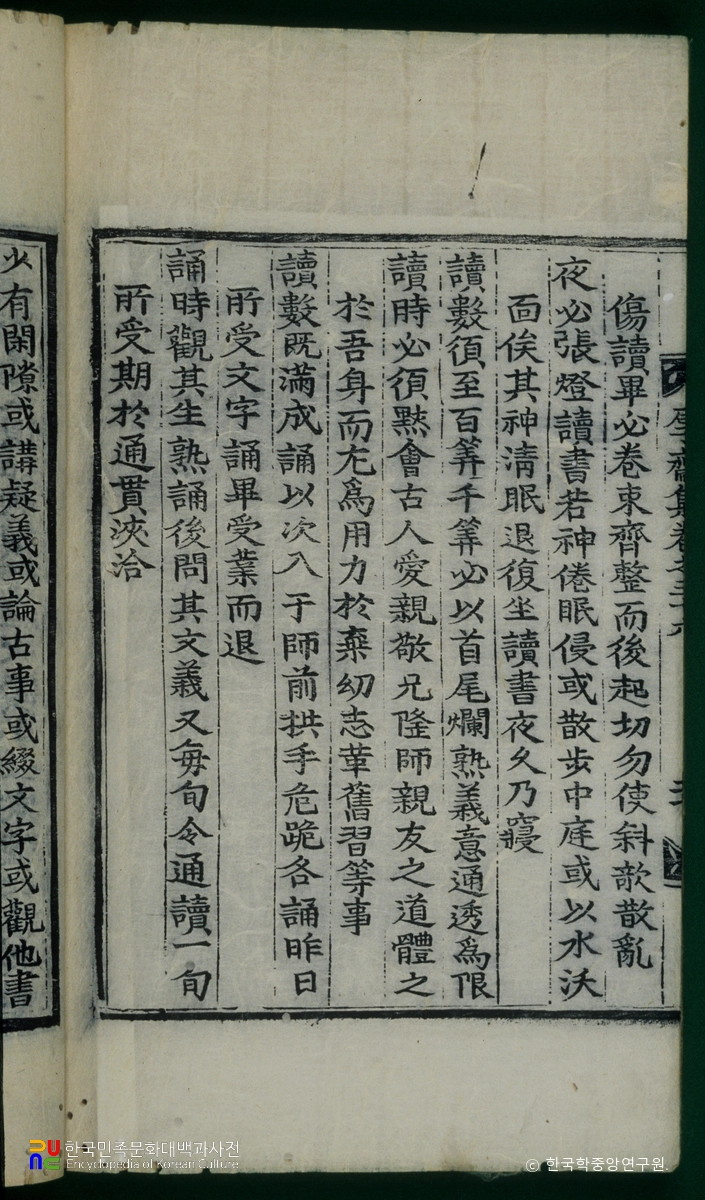 傷讀畢必卷束齊整而後起切勿使斜欹散亂
夜必張燈讀書若神倦眠侵或散步中庭或以水沃
面俟其神淸眠退復坐讀書夜久乃寢
讀數須至百筭千筭必以首尾爛熟義意通透爲限
讀時必須黙會古人愛親敬兄隆師親友之道體之
於吾身而尤爲用力於棄幼志革舊習等事
讀數旣滿成誦以次入于師前拱手危跪各誦昨日
所受文字誦畢受業而退
誦時觀其生熟誦後問其文義又每旬令通讀一旬
所受期於通貫浹洽
少有閑隙或講疑義或論古事或綴文字或觀他書
한국민족문화대백과사전
Encyclopedia of Korean Culture
© 한국학중앙연구원.